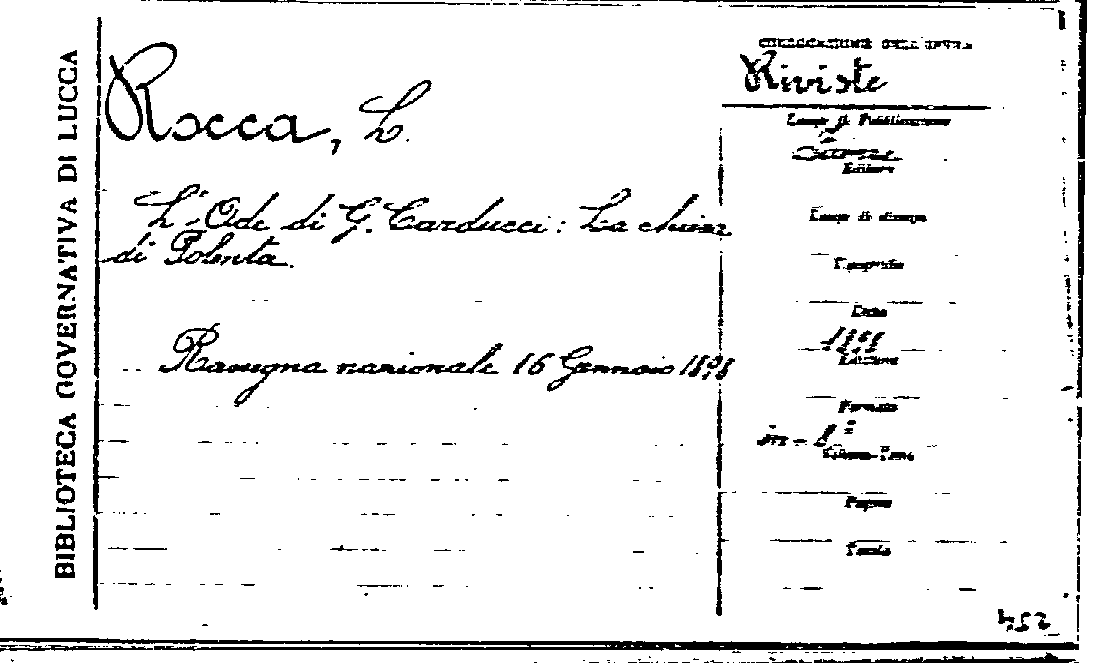 BIBLIOTECA GOVERNATIVA DI LUCCA
COLLOCAZIONE DELL'OPERA
Riviste
Rocca, L.
Luogo di Pubblicazione
Editore
L'Ode di G. Carducci: La chiesa
di Polenta.
Luogo di stampa
Tipografia
Data
1898
Edizione
Rassegna nazionale 16 Gennaio 1898
Formato
in-8º
Volume-Parte
Pagine
Tavole
452